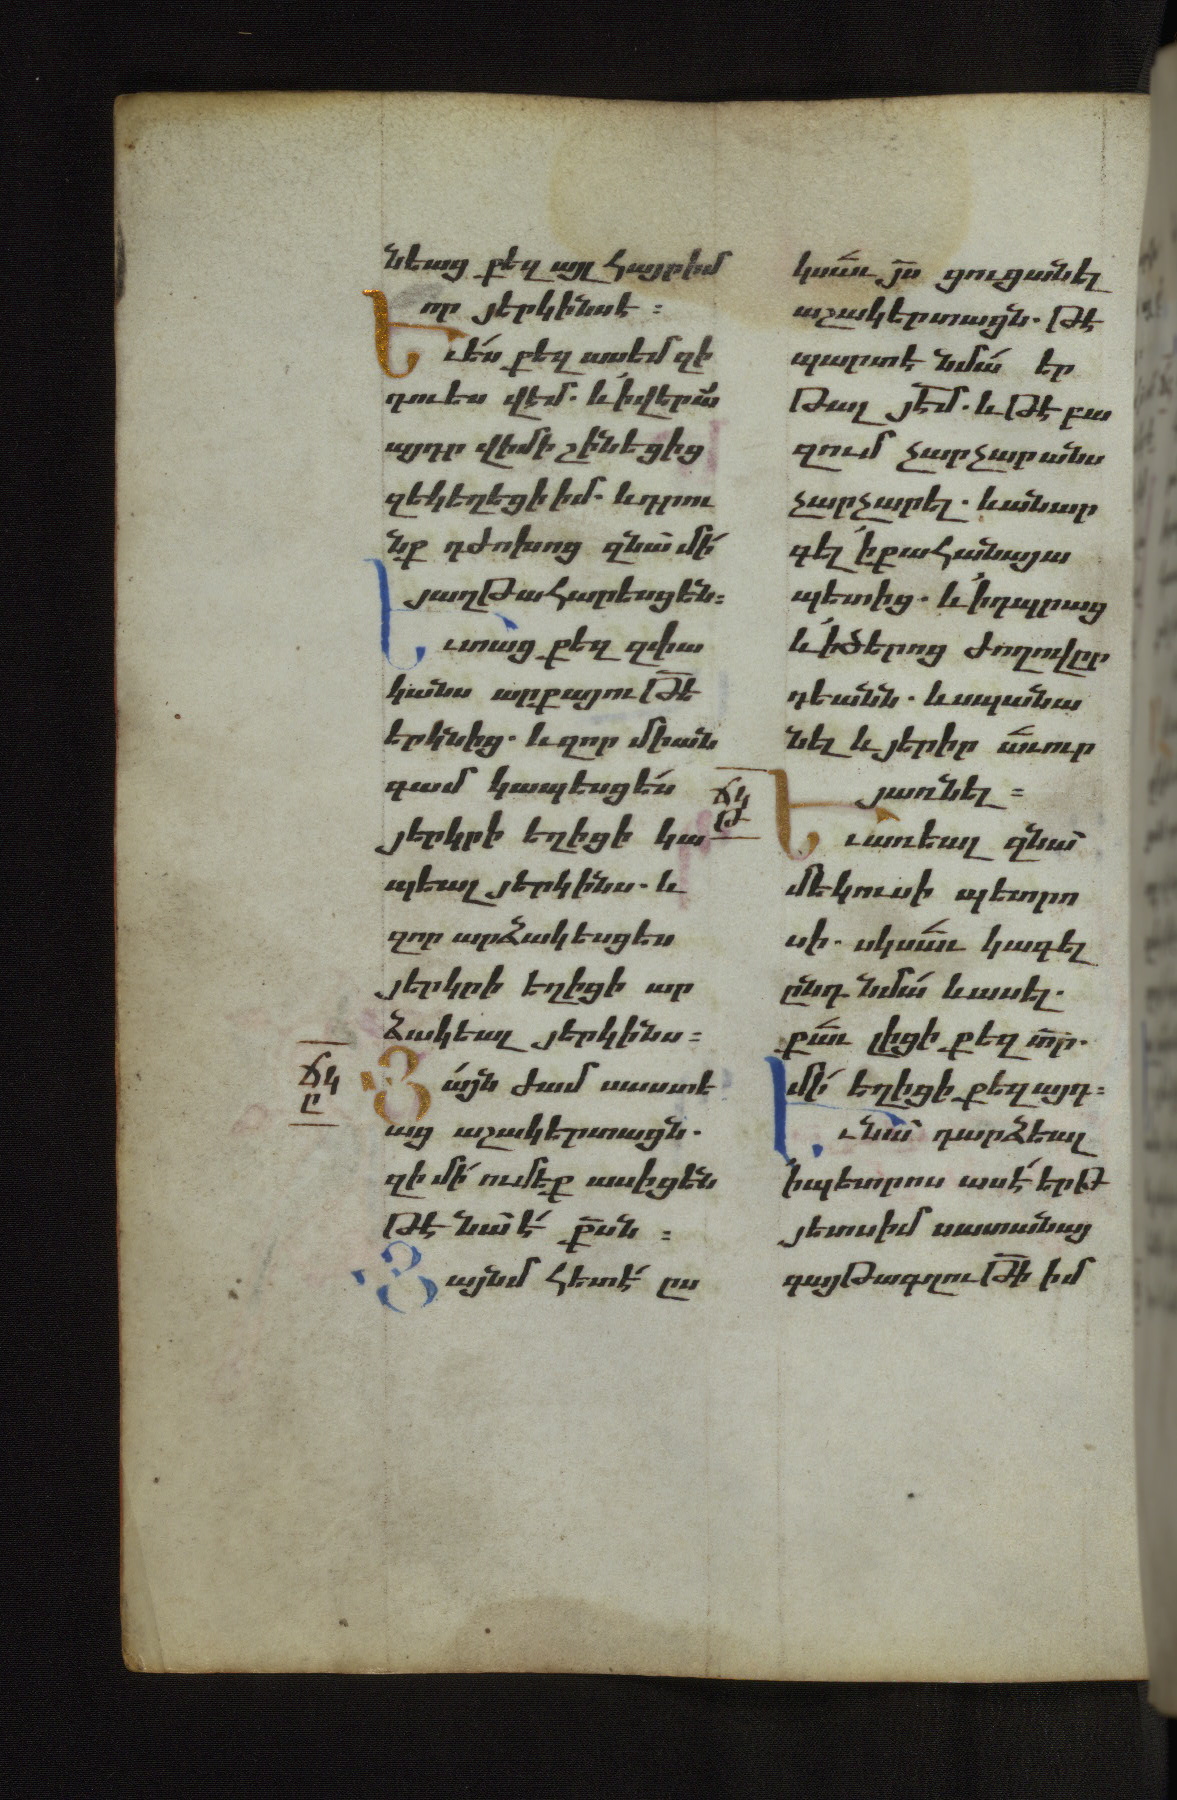 նեաց քեզ այլ հայրիմ
որ յերկինսէ ։
Եւես քեզ ասեմ զի
դուես վէմ. և ի վերա՟
այդր վիմի շինեցից
զեկեղեցի իմ. և դրու
նք դժոխոց զնա՟ մի՛
յաղթահարեսցեն։
Եւտաց քեզ զփա
կանս արքայու թե՟
երկնից. և զոր միան
գամ կապեսցե՛ս
յերկրի եղիցի կա
պեալ յերկինս. և
զոր արձակեսցես
յերկրի եղիցի ար
ձակեալ յերկինս։
ճկ
ը
Յայն ժամ սաստե
աց աշակերտացն.
զի մի՛ ումեք ասիցեն
թէ նա՟ է՛ ք՟սն ։
Յայնմ հետէ՛ ըս
կսա՟ւ յ՟ս ցուցանել
աշակերտացն. թէ
պարտէ նմա՛ եր
թալ յե՟մ. և թէ բա
զում չարչարանս
չարչարել. և անար
գել ի քահանայա
պետից. և ի դպրաց
և ի ծերոց ժողովըր
դեանն. և սպանա
նել և յերիր ա՟ւուր
յառնել ։
ճկ
թ
Եւառեալ զնա՟
մեկուսի պետրո
սի. սկսա՟ւ կագել
ընդ նմա՛ և ասել.
քա՟ւ լիցի քեզ տ՟ր.
մի՛ եղիցի քեզ այդ։
Եւնա՟ դարձեալ
ի պետրոս ասէ՛ երթ
յետս իմ սատանայ
գայթագղու թի՟ իմ